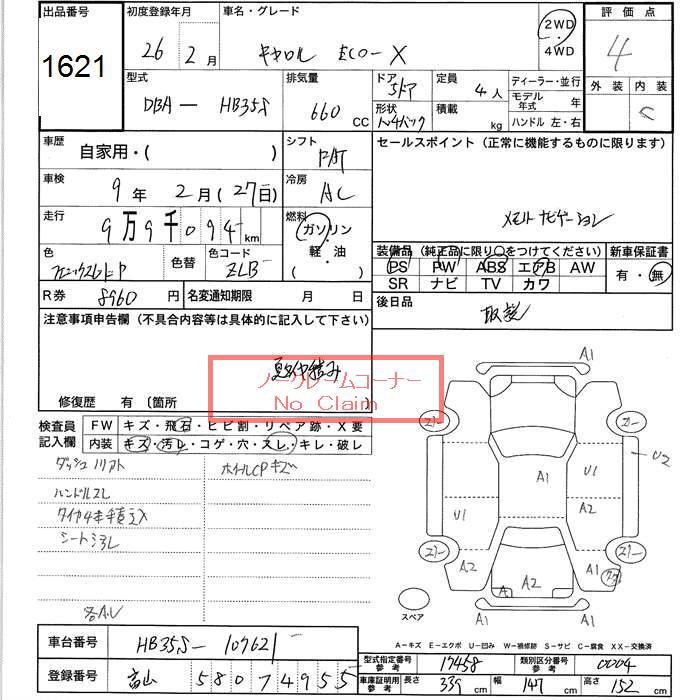 出品番号
1621
初度登録年月
26 2月
車名・グレード
キャロル ECO-X
2WD
・
4WD
評価点
4
型式
DBA- HB35S
排気量
660 cc
ドア
5ドア
形状
定員
4人
積載
kg
ディーラー・並行
モデル年式 年
ハンドル 左・右
外装 内装
C
車歴
自家用・( )
車検
9年 2月(27日)
走行
9万9千094km
色
色替
色コード
ZLB
シフト
FAT
冷房
AC
燃料
ガソリン
軽・油
( )
セールスポイント(正常に機能するものに限ります)
メモリナビゲーション
装備品(純正品に限り○をつけてください)
PS PW ABS エアB AW
SR ナビ TV カワ
新車保証書
有・無
R券 8960円
名変通知期限 月 日
後日品
取説
注意事項申告欄(不具合内容等は具体的に記入して下さい)
ノークレームコーナー
No Claim
修復歴 有 〔箇所
検査員
記入欄
FW キズ・飛石・ヒビ割・リペア跡・X要
内装 キズ・汚レ・コゲ・穴・スレ・キレ・破レ
ホイールCPキズ
ハンドルスレ
A1
U2
A1 U1
U1 A2
A2 A2 A1
A
A1 A1
スペア
A-キズ E-エクボ U-凹み W-補修跡 S-サビ C-腐食 XX-交換済
車台番号 HB35S-107621
登録番号 富山 580 7 4955
型式指定番号
参考
17458
類別区分番号
参考
0004
車庫証明用
参考
長さ 339cm 幅 147cm 高さ 152cm